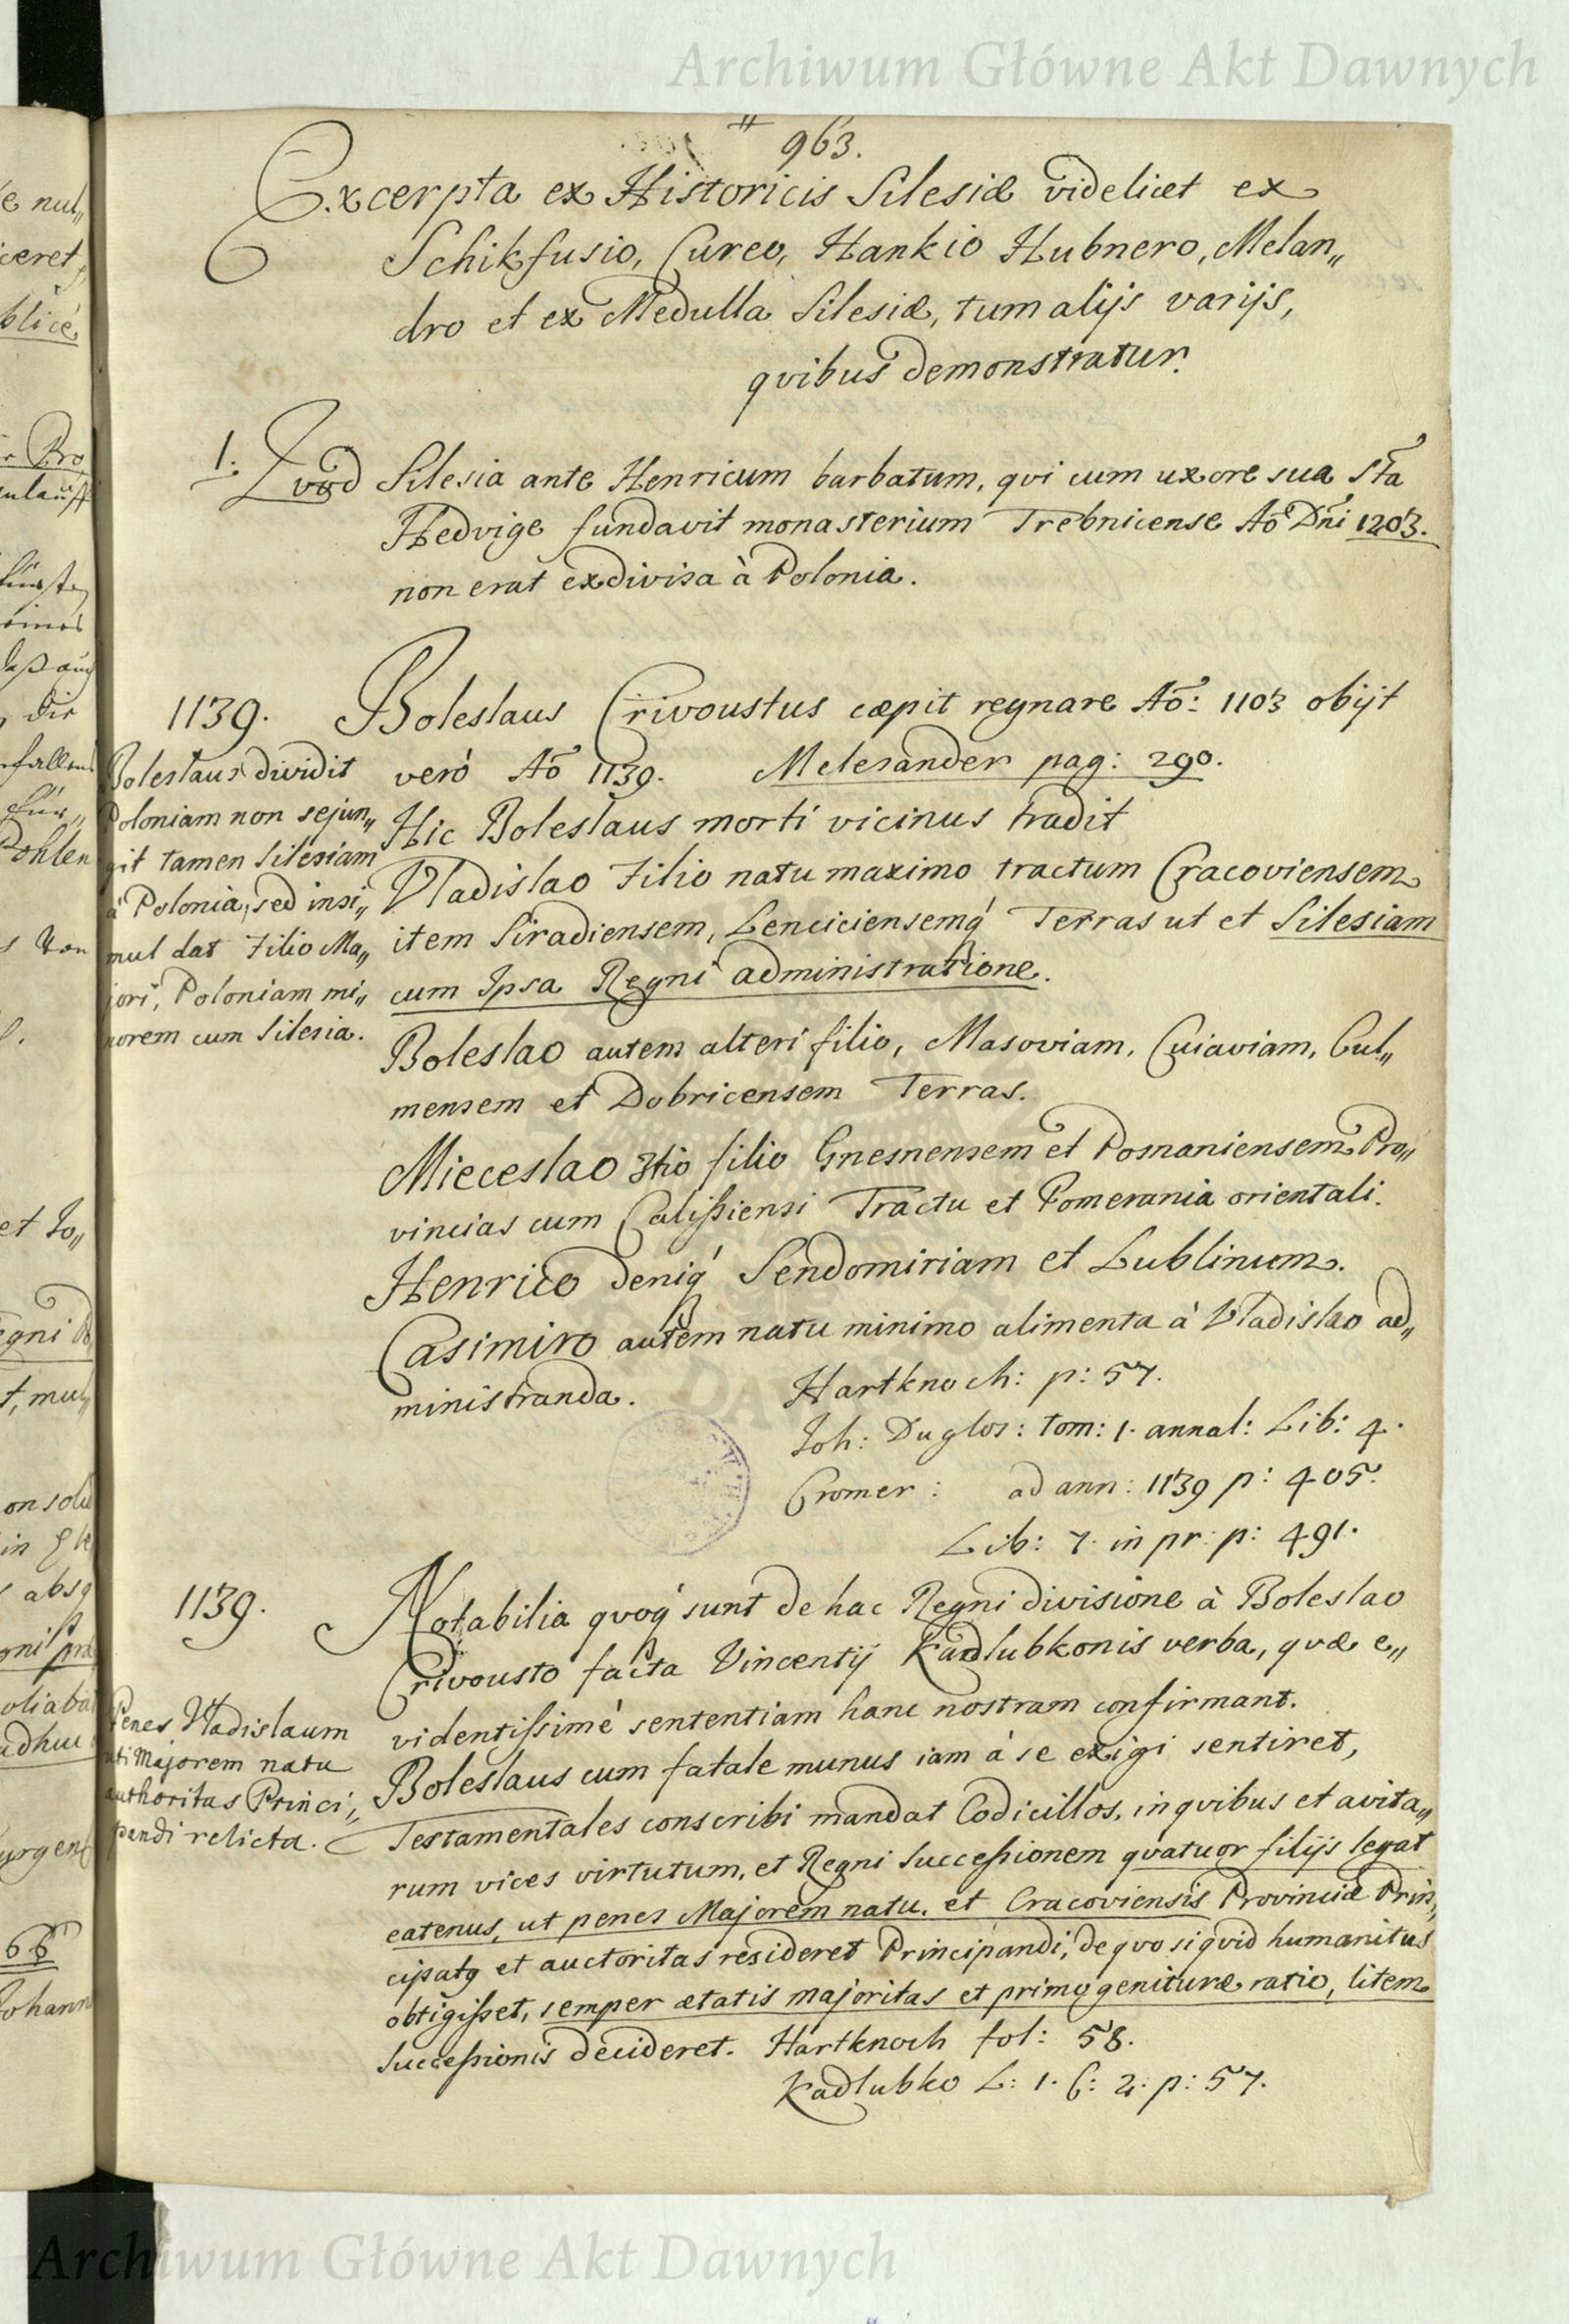 Archiwum Główne Akt Dawnych
963.
Excerpta ex Historicis Silesiæ videlicet ex
Schikfusio, Cureo, Hankio Hubnero, Melan„
dro et ex Medulla Silesiæ, tum alijs varijs,
qvibus demonstratur.
1. Qvod Silesia ante Henricum barbatum, qvi cum uxore sua Sta
Hedvige fundavit monasterium Trebnicense Ao Dni 1203.
non erat exdivisa à Polonia.
1139. Boleslaus Crivoustus cæpit regnare Ao: 1103 obijt
verò Ao 1139. Melesander pag: 290.
Boleslaus dividit
Poloniam non sejun„
git tamen Silesiam
à Polonia, sed insi„
mul dat Filio Ma„
jori, Poloniam mi„
norem cum Silesia.
Hic Boleslaus morti vicinus tradit
Vladislao Filio natu maximo tractum Cracoviensem
item Siradiensem, Lenciciensemq́ Terras ut et Silesiam
cum Ipsa Regni administratione.
Boleslao autem alteri filio, Masoviam, Cuiaviam, Cul„
mensem et Dobricensem Terras.
Mieceslao 3tio filio Gnesnensem et Posnaniensem Pro„
vincias cum Calißiensi Tractu et Pomerania orientali.
Henrico deniq́ Sendomiriam et Lublinum.
Casimiro autem natu minimo alimenta à Vladislao ad„
ministranda. Hartknoch: p: 57.
Joh: Duglos: tom: 1. annal: Lib: 4.
Cromer: ad ann: 1139 p: 405.
Lib: 7. in pr: p: 491.
1139. Notabilia qvoq́ sunt de hac Regni divisione à Boleslao
Crivousto facta Vincentij Kadlubkonis verba, qvæ e„
videntißimè sententiam hanc nostram confirmant.
Penes Vladislaum
uti Majorem natu
authoritas Princi„
pandi relicta.
Boleslaus cum fatale munus iam à se exigi sentiret,
Testamentales conscribi mandat Codicillos, in qvibus et avita„
rum vices virtutum, et Regni Succeßionem qvatuor filijs legat
eatenus, ut penes Majorem natu, et Cracoviensis Provinciæ Prin„
cipatq et auctoritas resideret Principandi, de qvo si qvid humanitus
obtigißet, semper ætatis majoritas et primogenituræ ratio, litem
Succeßionis decideret. Hartknoch fol: 58.
Kadlubko L: 1. C: 2. p: 57.
Archiwum Główne Akt Dawnych